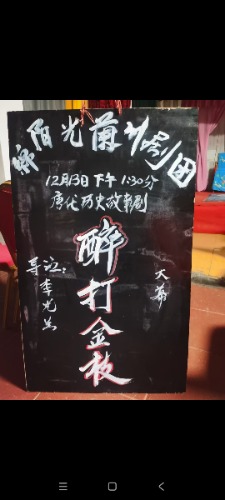 阳光莆剧团
12月13日下午1:30分
唐代历史故事剧
醉打金枝
导演:
李光
大幕